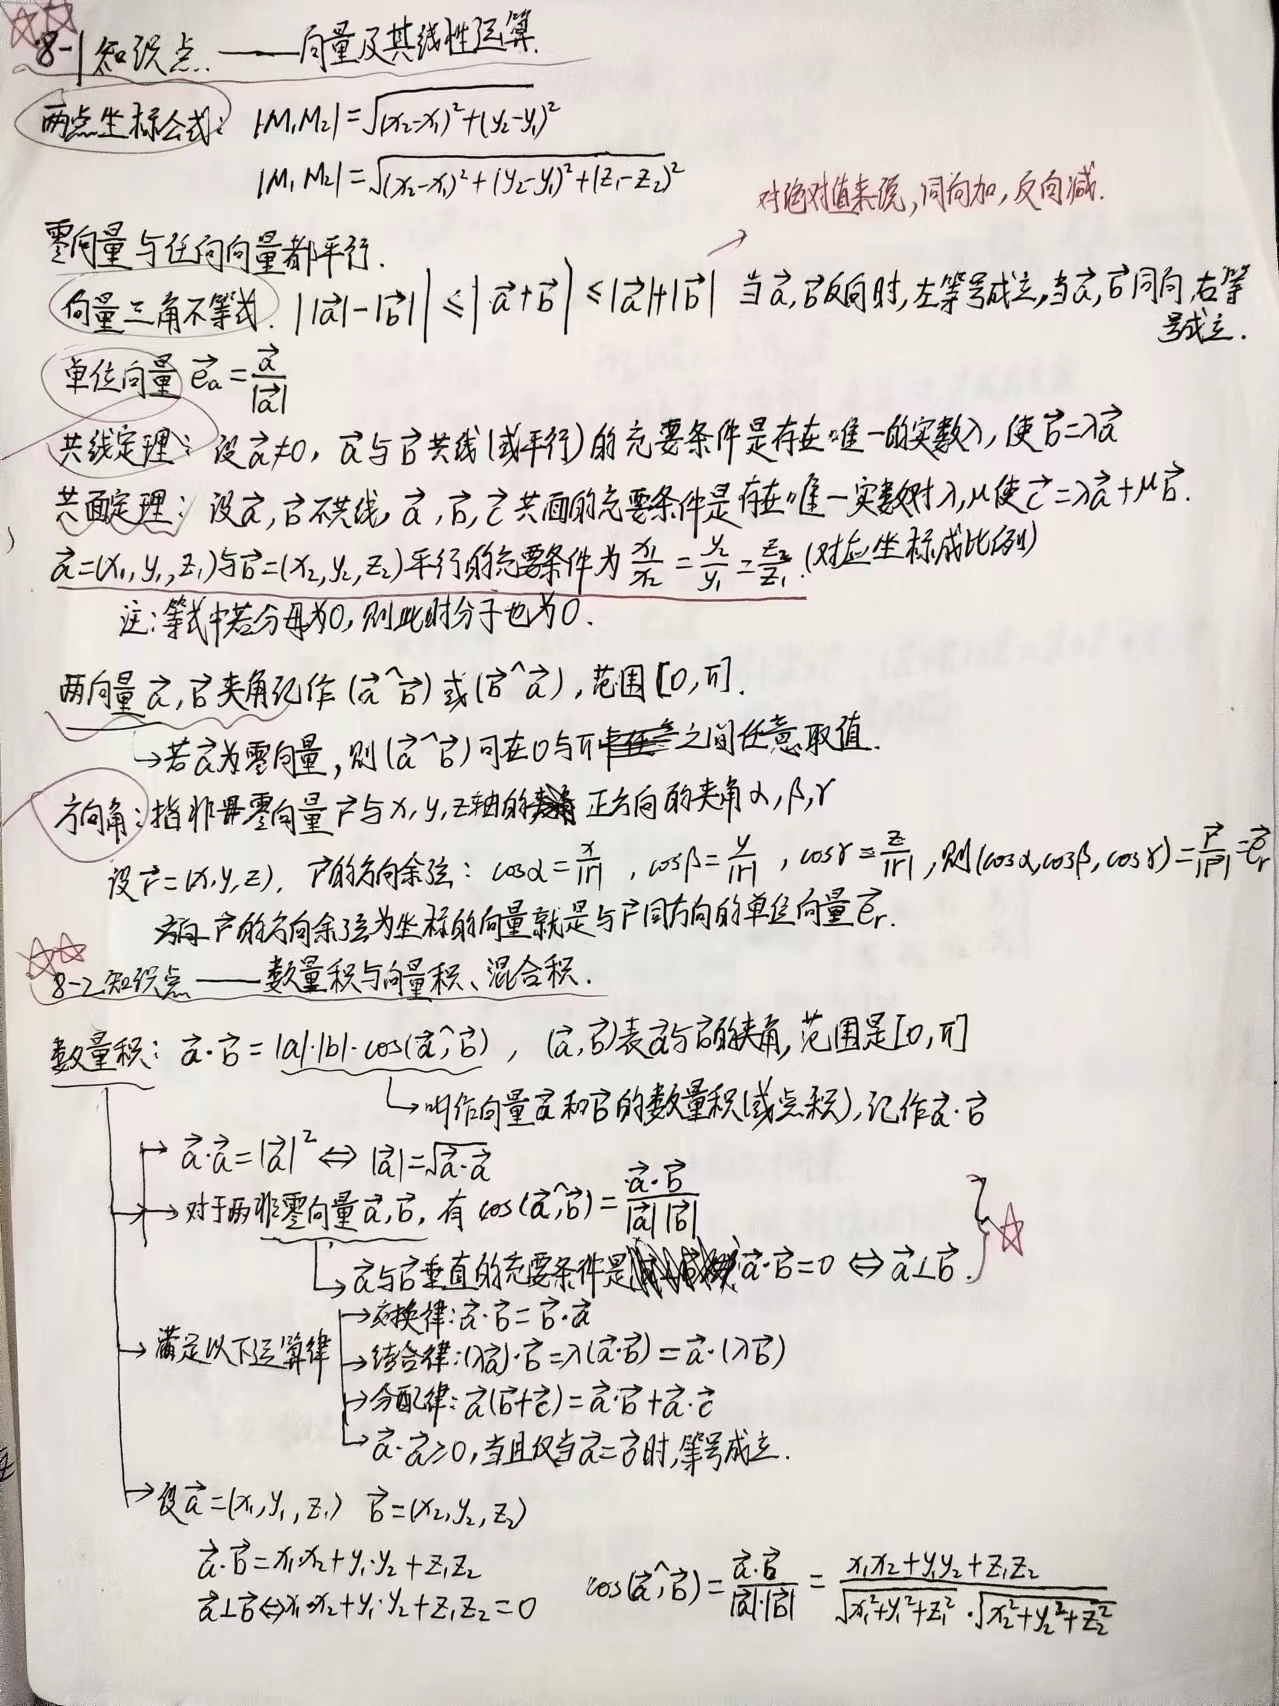 8-1知识点 ——向量及其线性运算.
两点坐标公式: |M₁M₂|=√(x₂-x₁)²+(y₂-y₁)²
|M₁M₂|=√(x₂-x₁)²+(y₂-y₁)²+(z₁-z₂)²
对绝对值来说,同向加,反向减.
零向量与任何向量都平行.
向量三角不等式. ||a⃗|-|b⃗||≤|a⃗+b⃗|≤|a⃗|+|b⃗| 当a⃗,b⃗反向时,左等号成立,当a⃗,b⃗同向,右等
号成立.
单位向量 e⃗ₐ=a⃗/|a⃗|
共线定理: 设a⃗≠0, a⃗与b⃗共线(或平行)的充要条件是存在唯一的实数λ,使b⃗=λa⃗
共面定理: 设a⃗,b⃗不共线,a⃗,b⃗,c⃗共面的充要条件是存在唯一实数对λ,μ使c⃗=λa⃗+μb⃗.
a⃗=(x₁,y₁,z₁)与b⃗=(x₂,y₂,z₂)平行的充要条件为x₁/x₂=y₂/y₁=z₂/z₁.(对应坐标成比例)
注:等式中若分母为0,则此时分子也为0.
两向量a⃗,b⃗夹角记作(a⃗^b⃗)或(b⃗^a⃗),范围[0,π].
→若a⃗为零向量,则(a⃗^b⃗)可在0与π之间任意取值.
方向角:指非零向量r⃗与x,y,z轴的正方向的夹角α,β,γ
设r⃗=(x,y,z), r⃗的方向余弦: cosα=x/|r|, cosβ=y/|r|, cosγ=z/|r|,则(cosα,cosβ,cosγ)=r⃗/|r⃗|=e⃗ᵣ
r⃗的方向余弦为坐标的向量就是与r⃗同方向的单位向量e⃗ᵣ.
8-2知识点——数量积与向量积、混合积.
数量积: a⃗·b⃗=|a|·|b|·cos(a⃗^b⃗), (a⃗,b⃗)表a⃗与b⃗的夹角,范围是[0,π]
→叫作向量a⃗和b⃗的数量积(或点积),记作a⃗·b⃗
→a⃗·a⃗=|a⃗|²⇔|a⃗|=√a⃗·a⃗
→对于两非零向量a⃗,b⃗,有cos(a⃗^b⃗)=a⃗·b⃗/|a⃗||b⃗|
→a⃗与b⃗垂直的充要条件是a⃗·b⃗=0⇔a⃗⊥b⃗.
→交换律:a⃗·b⃗=b⃗·a⃗
→满足以下运算律 →结合律:(λa⃗)·b⃗=λ(a⃗·b⃗)=a⃗·(λb⃗)
→分配律:a⃗(b⃗+c⃗)=a⃗·b⃗+a⃗·c⃗
→a⃗·a⃗≥0,当且仅当a⃗=0⃗时,等号成立.
→设a⃗=(x₁,y₁,z₁) b⃗=(x₂,y₂,z₂)
a⃗·b⃗=x₁·x₂+y₁·y₂+z₁z₂
a⃗⊥b⃗⇔x₁·x₂+y₁·y₂+z₁z₂=0
cos(a⃗^b⃗)=a⃗·b⃗/|a⃗|·|b⃗|=x₁x₂+y₁y₂+z₁z₂/√x₁²+y₁²+z₁²·√x₂²+y₂²+z₂²